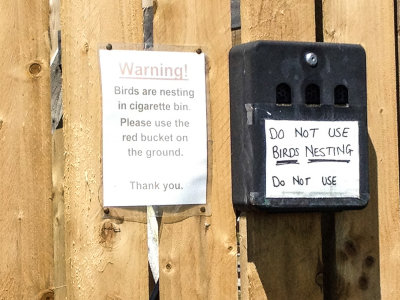 Warning!
Birds are nesting
in cigarette bin.
Please use the
red bucket on
the ground.
Thank you.
DO NOT USE
BIRDS NESTING
DO NOT USE